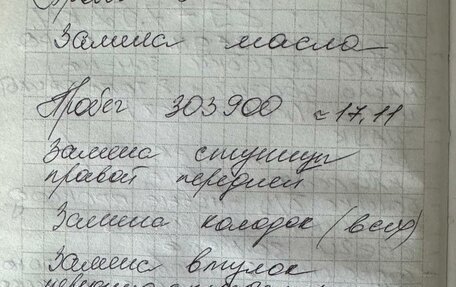 Замена масла
Пробег 303900 с 17,11
Замена ступицы
правой передней
Замена колодок (всех)
Замена втулок